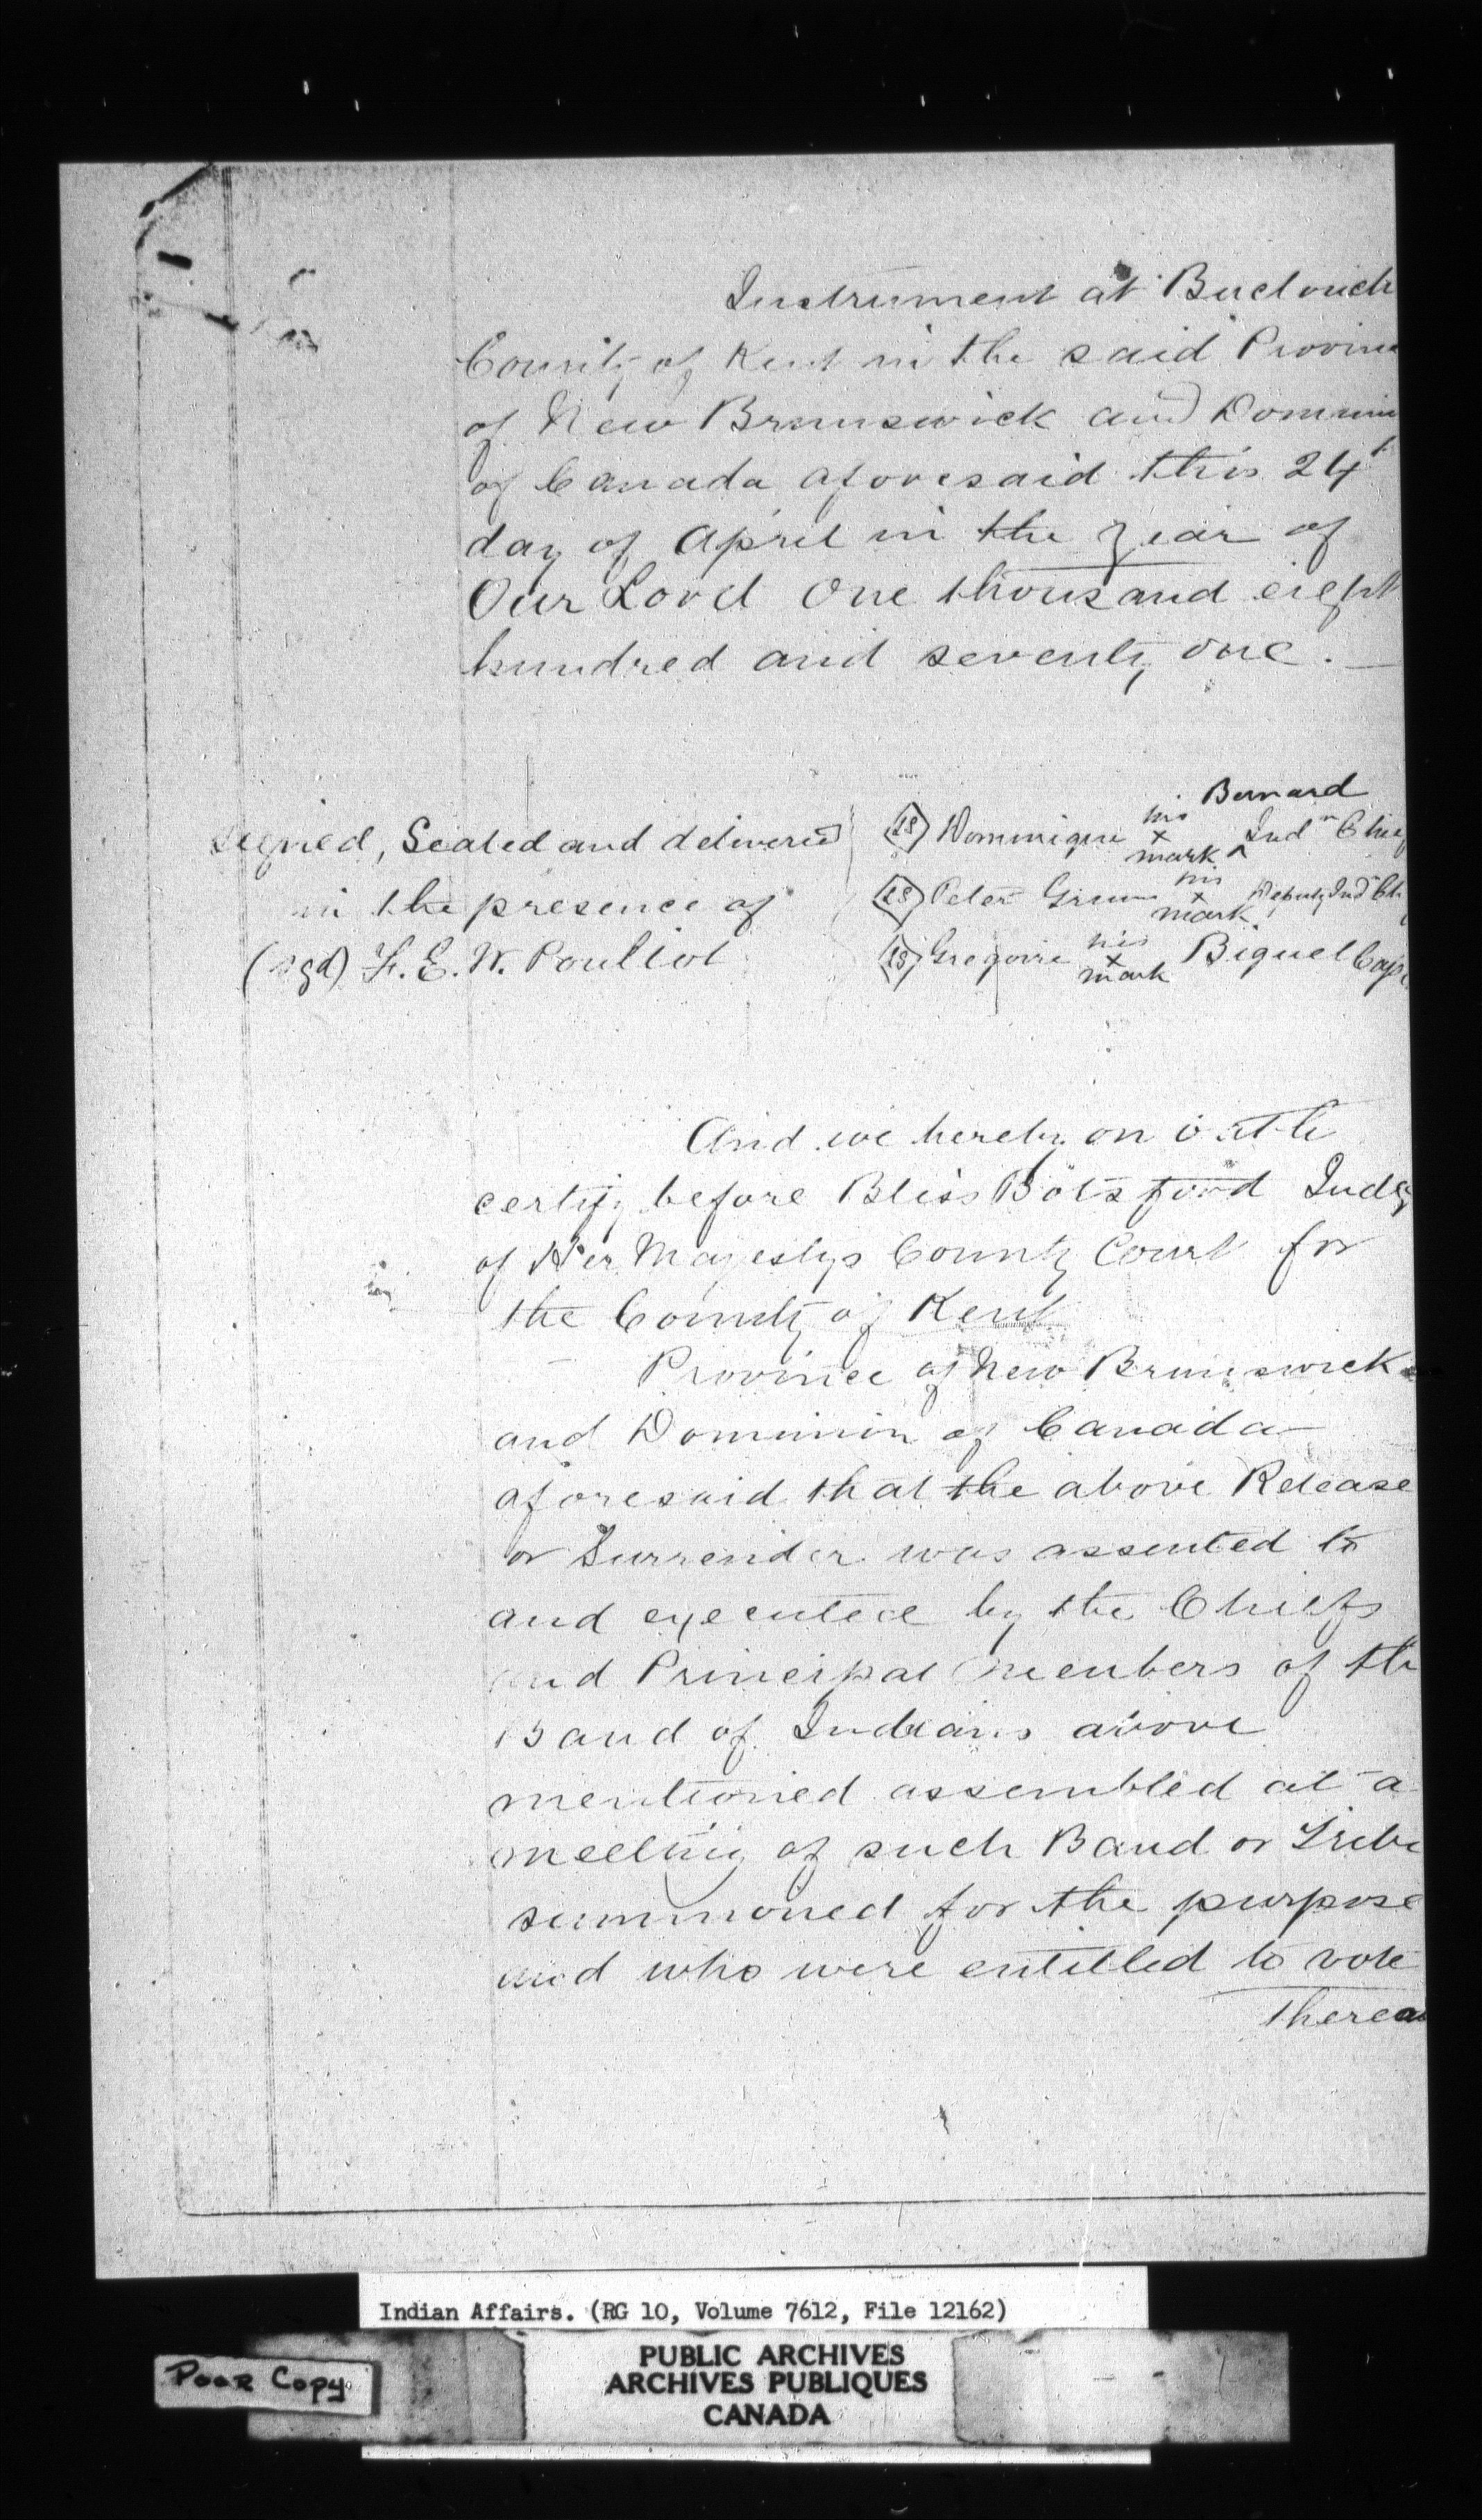 Instrument at Buctouch
County of Kent in the said Provinc
of New Brunswick and Domini
of Canada aforesaid this 24t
day of April in the year of
Our Lord One thousand eight
hundred and seventy one. —
Signed, Sealed and delivered
in the presence of
(sgd) F. E. W. Pouliot
LS Dominique his x mark ^ Bernard Indn Chief
LS Peter his x mark Deputy Ind Ch
LS Gregoire his x mark Biguel Capt
And we hereby on oath
certify before Bliss Botsford Judg
of Her Majestys County Court for
the County of Kent
Province of New Brunswick
and Dominion of Canada
aforesaid that the above Release
or Surrender was assented to
and executed by the Chiefs
and Principal members of the
Band of Indians above
mentioned assembled at a
meeting of such Band or Tribe
summoned for the purpose
and who were entitled to vote
Thereat
Indian Affairs. (RG 10, Volume 7612, File 12162)
PUBLIC ARCHIVES
ARCHIVES PUBLIQUES
CANADA
Poor Copy